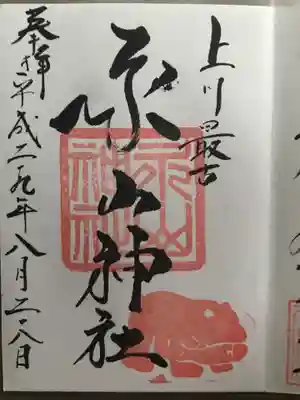 上川最古
永山神社
奉拝 平成二九年八月二八日